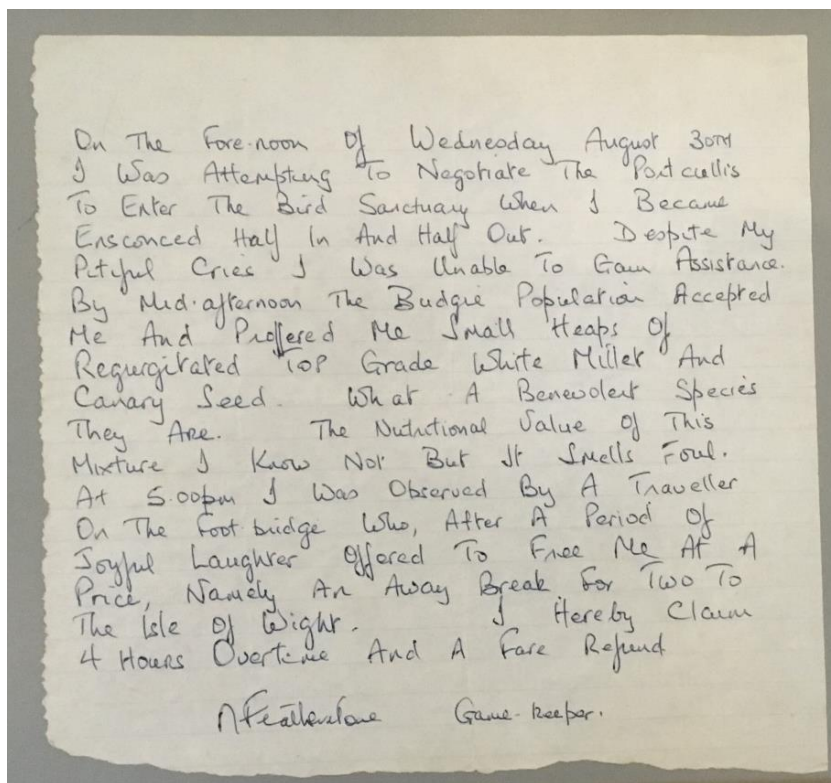 On The Fore-noon Of Wednesday August 30TH
I Was Attempting To Negotiate The Portcullis
To Enter The Bird Sanctuary When I Became
Ensconced Half In And Half Out. Despite My
Pitiful Cries I Was Unable To Gain Assistance.
By Mid-afternoon The Budgie Population Accepted
Me And Proffered Me Small Heaps Of
Regurgitated TOP Grade White Millet And
Canary Seed. What A Benevolent Species
They Are. The Nutritional Value Of This
Mixture I Know Not But It Smells Foul.
At 5.00pm I Was Observed By A Traveller
On The Foot bridge Who, After A Period Of
Joyful Laughter Offered To Free Me At A
Price, Namely An Away Break For Two To
The Isle Of Wight. I Hereby Claim
4 Hours Overtime And A Fare Refund
N Featherstone Game-keeper.